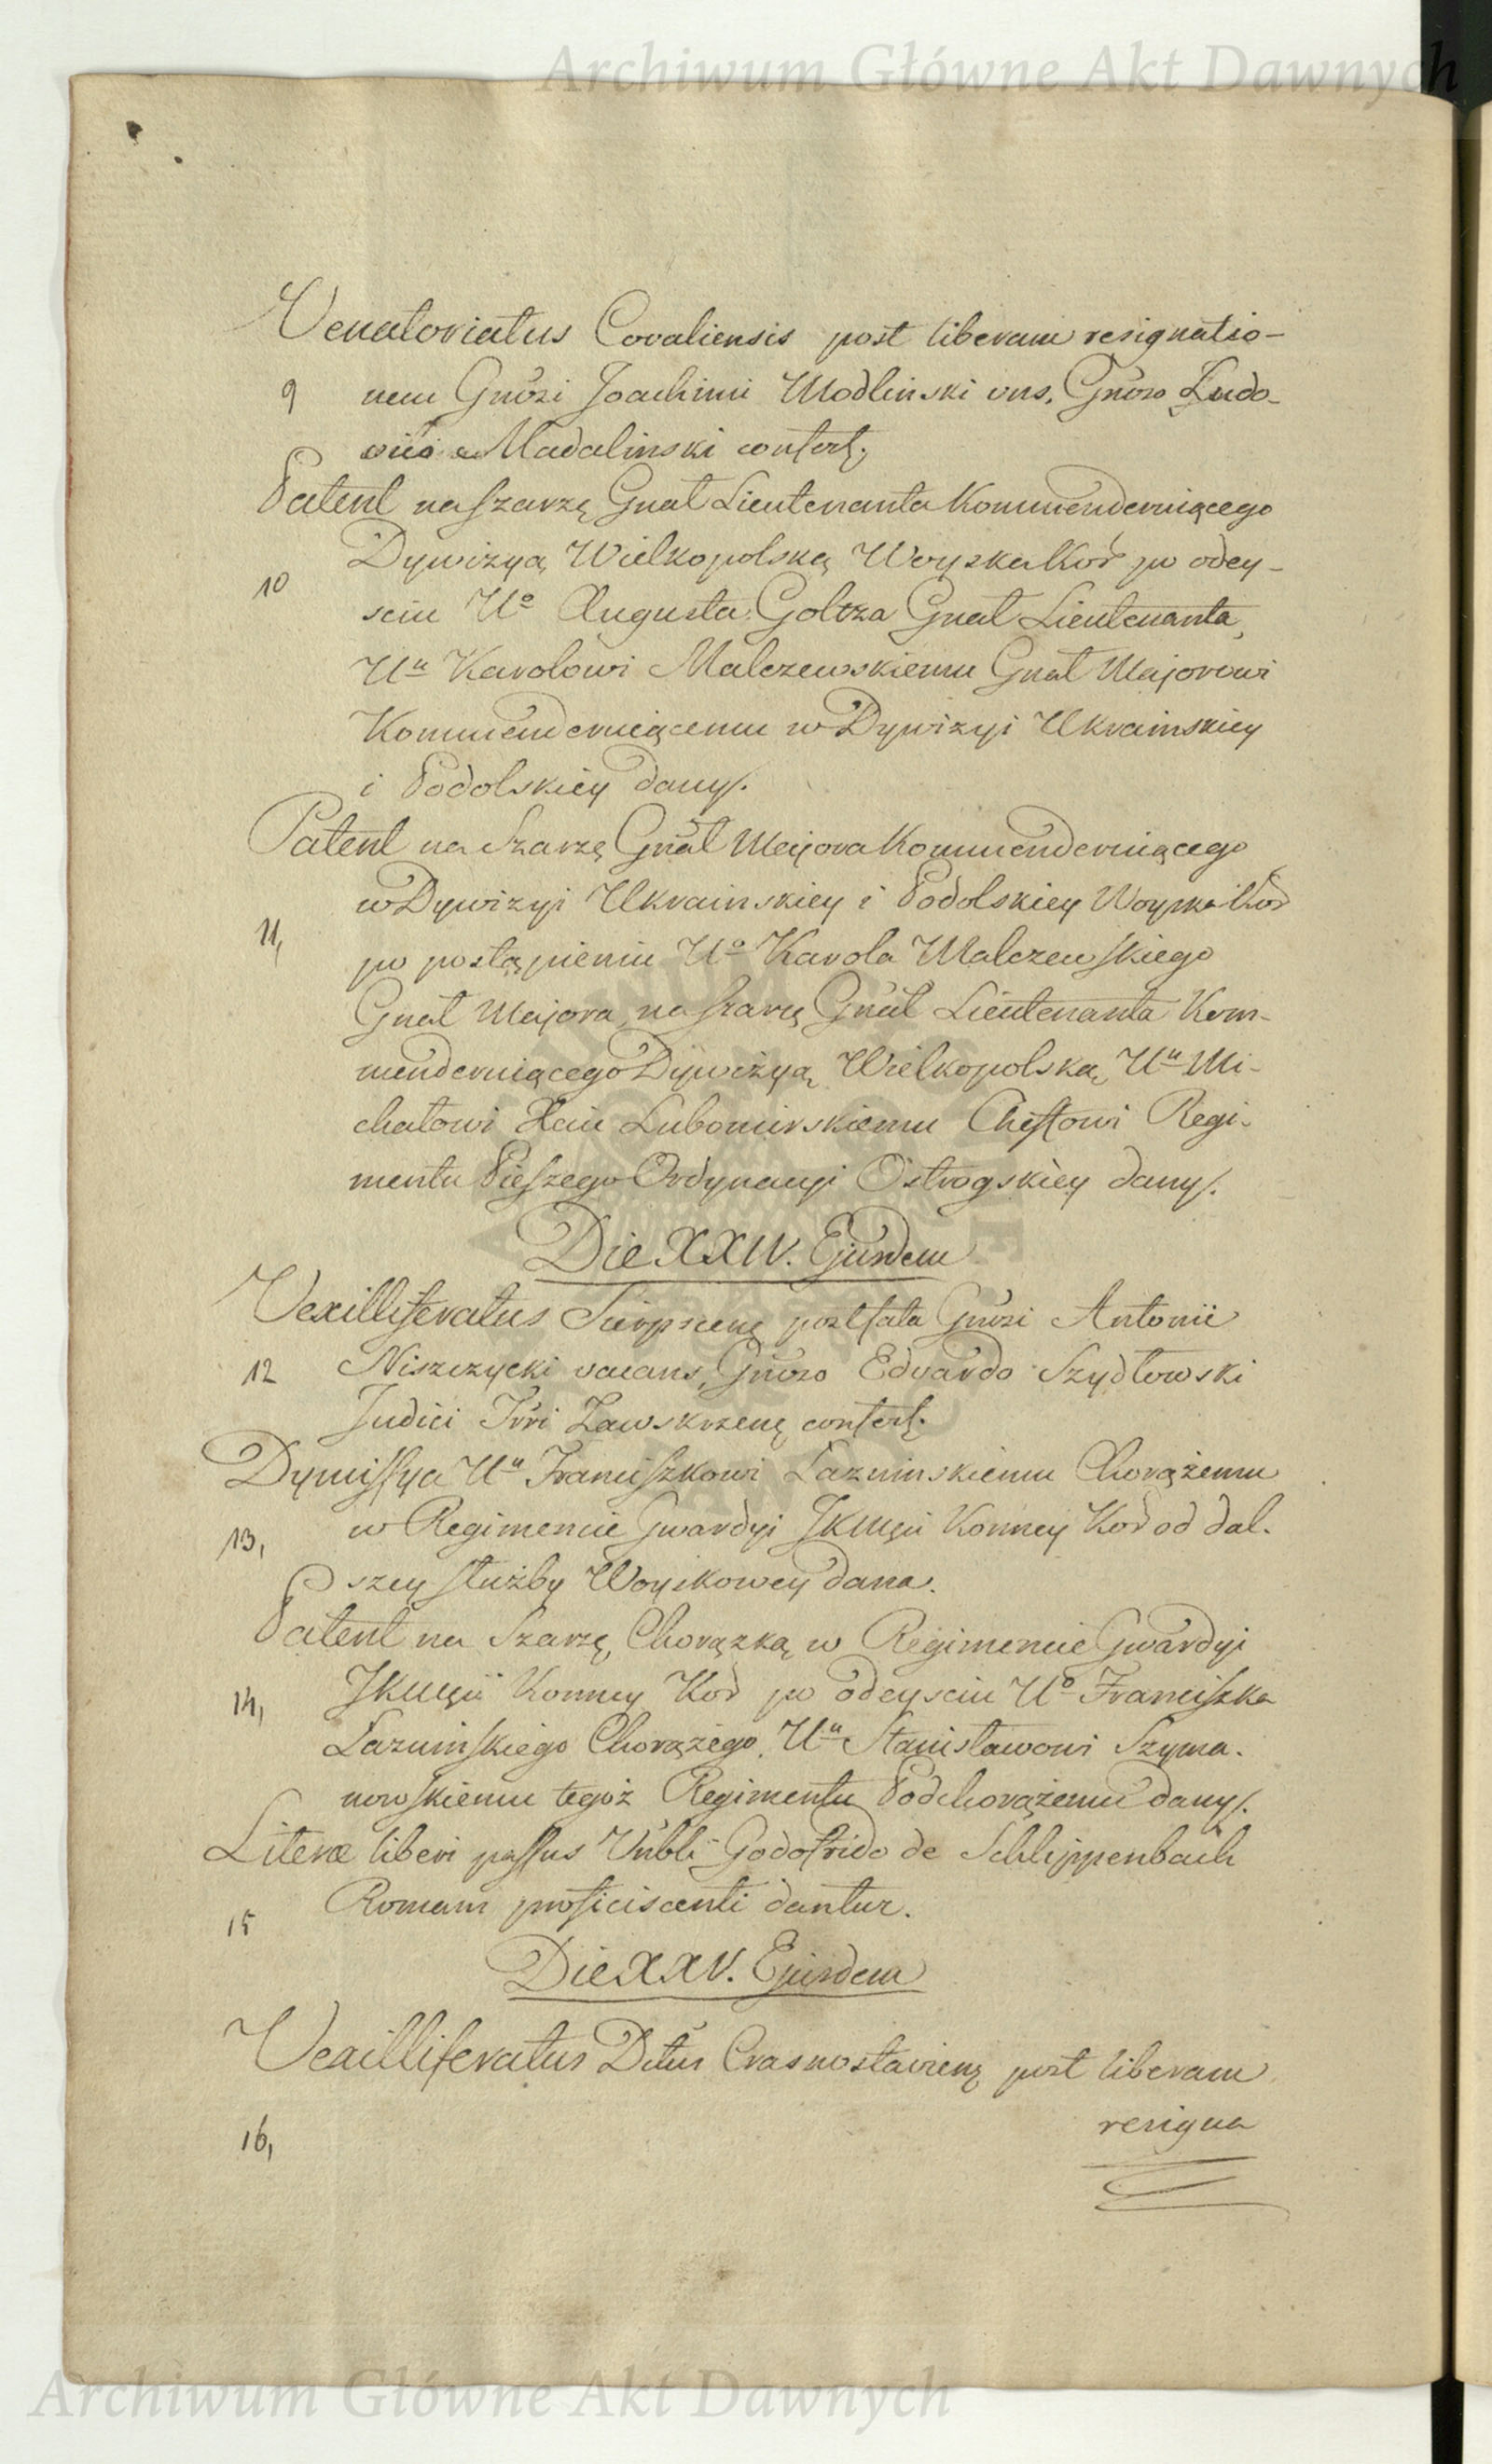 Archiwum Główne Akt Dawnych
Venatoriatus Covaliensis post liberam resignatio-
9 nem Gnŏsi Joachimi Modlinski vns, Gnŏso Ludo-
vico Madalinski confert;
Patent na szarzę Gnał Lieutenanta Kommenderuiącego
Dywizyą Wielkopolską Woyska Kor po odey-
10
sciu Uo Augusta Goltza Gnał Lieutenanta,
Uu Karolowi Malczewskiemu Gnał Majorowi
Kommenderuiącemu w Dywizyi Ukrainskiey
i Podolskiey dany.
Patent na Szarzę Gnał Majora Kommenderuiącego
w Dywizyi Ukrainskiey i Podolskiey Woyska Kor
11,
po postąpieniu Uo Karola Malczewskiego
Gnał Majora na szarzę Gnał Lieutenanta Kom-
menderuiącego Dywizyą Wielkopolską, Uu Mi-
chałowi Xciu Lubomirskiemu Cheffowi Regi-
mentu Pieszego Ordynacyi Ostrogskiey dany.
Die XXIV. Ejusdem
Vexilliferatus Sierpscenę post fata Gnŏsi Antonii
12 Niszczycki vacans, Gnŏso Edvardo Szydłowski
Judici Trri Zawskrzenę confert.
Dymissya Uu Franciszkowi Lazninskiemu Chorążemu
w Regimencie Gwardyi JKMęii Konney Kor od dal-
13,
szey służby Woyskowey dana.
Patent na Szarzę Chorązką w Regimencie Gwardyi
14, JKMęii Konney Kor po odeysciu Uo Franciszka
Lazninskiego Chorązego, Uu Stanisławowi Szyma-
nowskiemu tegoz Regimentu Podchorązemu dany.
Literæ liberi passus Vnbli Godofrido de Schlippenbach
Romam proficiscenti dantur.
15
Die XXV. Ejusdem
Vexilliferatus Dttus Crasnostavienę post liberam
resigna
16,
Archiwum Główne Akt Dawnych